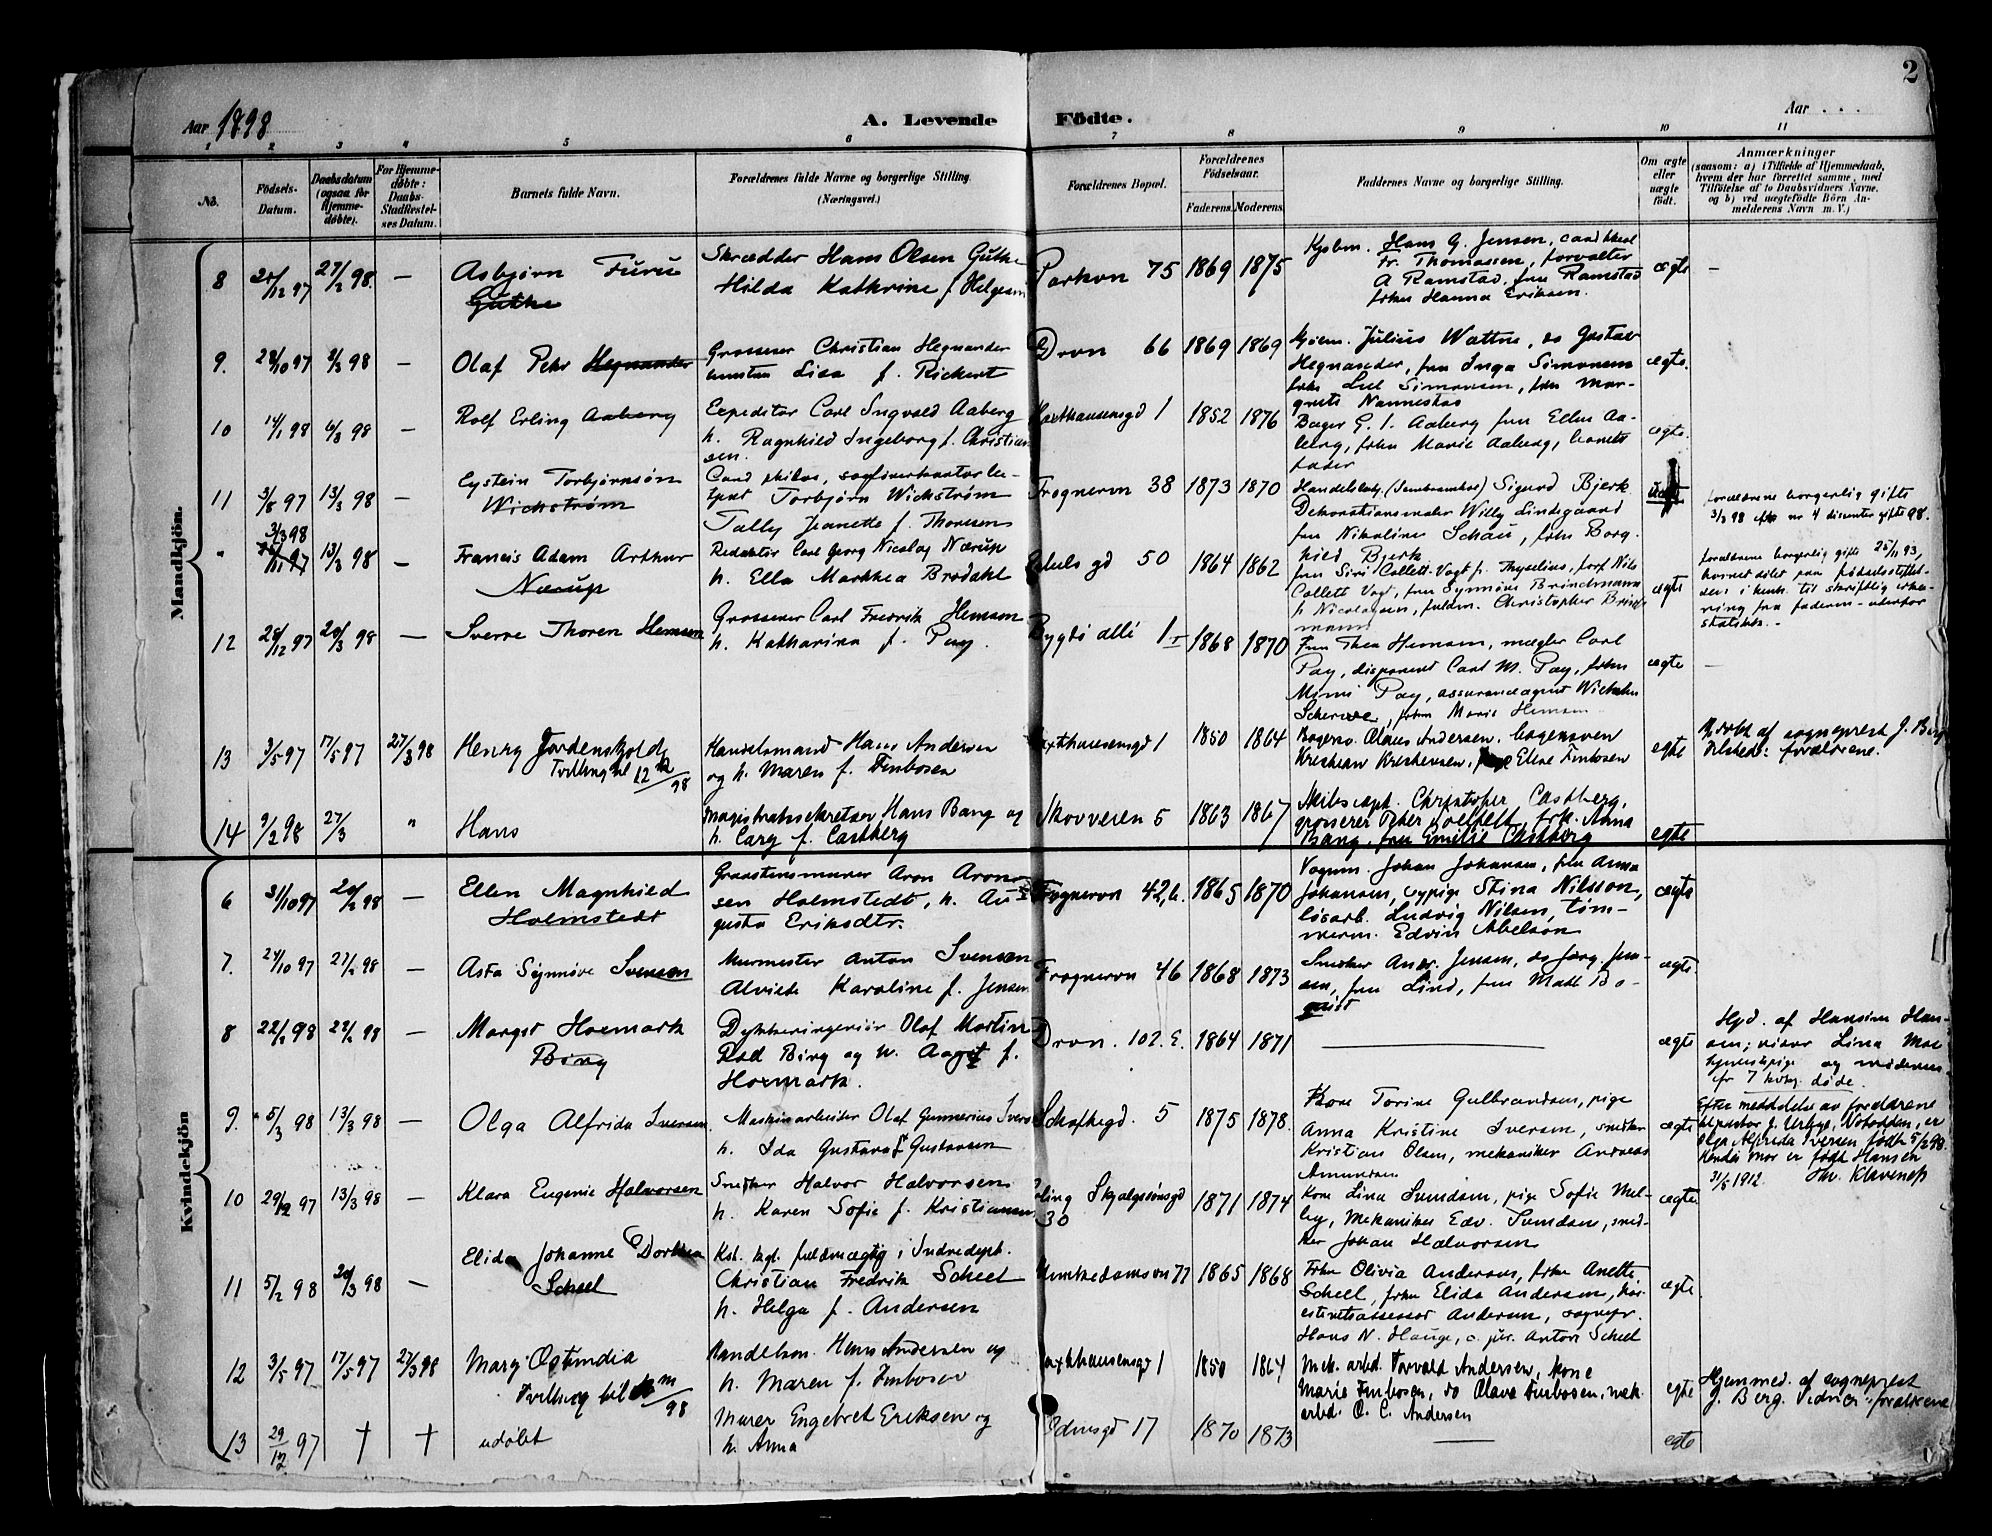 2
Aar 1898
A. Levende Födte.
Aar . . .
1 2 3 4 5 6 7 8 9 10 11
No.
Födsels-Datum.
Daabsdatum (ogsaa for Hjemme-døbte).
For Hjemme-døbte: Daabs-Stadfæstel-ses Datum.
Barnets fulde Navn.
Forældrenes fulde Navne og borgerlige Stilling. (Næringsvei.)
Forældrenes Bopæl.
Forældrenes Födselsaar.
Faderens. Moderens.
Faddernes Navne og borgerlige Stilling.
Om ægte eller uægte födt.
Anmærkninger
(saasom: a) i Tilfælde af Hjemmedaab, hvem der har forrettet samme, med Tilföielse af to Daabsvidners Navne, og b) ved uægtefödte Börn An-melderens Navn m. V.)
Mandkjön.
8 27/2 98 — Asbjørn Furu Guthe
Skrædder Hans Olsen Guthe
Hilda Kathrine f. Helgesen
Parkvn 75 1869 1875
Kjøbm. Hans G. Jensen, cand
Fr. Thomassen, forvalter
A Ramstad, fru Ramstad
frkn Hanna Eriksen.
ægte —
9. 28/10 97 98 — Olaf Peter Hegnander
Grosserer Christian Hegnander
Lisa f. Rickert
Drvn 66 1869 1869
Julius Wattne, do Gustav
Hegnander, fru Inga Simonsen
frkn Simonsen, frkn Mar-
grete Nannestad
ægte.
10 14/1 98 6/3 98 — Rolf Erling Aaberg
Expeditør Carl Ingvald Aaberg
h. Ragnhild Ingeborg f. Christian
sen.
1 1852 1876
Bager G. I. Aaberg fru Ellen Aa-
berg, frkn Marie Aaberg, barnets
fader
ægte.
11 3/8 97 13/3 98 — Eystein Torbjørnsøn
Wichstrøm
Cand philos,
Torbjørn Wichstrøm
Tally Jeanette f. Thoresen
Frognervn 38 1873 1870
Sigurd Bjerk
Dekorationsmaler Willy Lindegaard
fru Nikoline Schau, frkn Borg-
hild Bjerk
forældrene borgerlig gifte
3/3 98 nr 4 dissenter gifte 98.
" 3/3 98 13/3 98 — Francis Adam Arthur
Nærup
Redaktør Carl Georg Nicolay Nærup
h. Ella Marthea Brodahl
50 1864 1862
fru Siri Collett-Vogt f. Thyselius, forf Nils
Collett Vogt, fru Synnøve Brinchmann
f. Nicolaysen, fuldm. Christopher Brinch
mann
ægte
forældrene borgerlig gifte 25/11 93,
barnet døbt paa fødselsattest
i henh. til skriftlig erklæ-
ring fra faderen - udenfor
statsk. -
12 28/12 97 20/3 98 — Sverre Thoren Hemsen
Grosserer Carl Fredrik Hemsen
h. Katharina f. Pay.
Bygdø allé 1 1868 1870
Fru Thea Hemsen, mægler Carl
Pay, disponent Carl M. Pay, frkn
Mimi Pay, assuranceagent Wichelm
frkn Marie Hemsen
ægte —
13 3/5 97 17/5 97 27/3 98 Henry Jordenskjold
Tvilling til 12 k/98
Handelsmand Hans Andersen
og h. Maren f. Finbosen
1 1850 1864
Olaus Andersen, bagersven
Kristian Kristensen, Eline Finbosen
egte
af sogneprest J. Berg
Tilstede: forældrene.
14 9/2 98 27/3 " Hans
Magistratssekretær Hans Bang og
h. Cary f. Castberg
Skovveien 5 1863 1867
Christopher Castberg,
grosserer Peter frk. Anna
Bang, fru Emilie Castberg
egte
Kvindekjön
6 31/10 97 20/2 98 — Ellen Magnhild
Holmstedt
Graastensmurer Aron Aron-
sen Holmstedt, h. Au-
gusta Eriksdtr.
Frognervn 42,b. 1865 1870
Vognm. Johan Johansen, fru Anna
Johansen, sypige Stina Nilsson,
løsarb. Ludvig Nilsen, tøm-
merm. Edvin Abelson
ægte
7. 24/10 97 27/2 98 — Asta Signnøve Svensen
Murmester Anton Svensen
Alvilde Karoline f. Jensen
Frognervn 46 1868 1873
Snedker Andr. Jensen, do Jørg. Jen-
sen, fru Lind, fru Math. Bo-
quist
ægte
8 22/2 98 28/2 98 — Margit Hoemark
Bing
Dykkeringeniør Olaf Martin
Rød Bing og h. Aagot f.
Hoemark.
Drvn. 102. E. 1864 1871
—
ægte
Hjd. af Hansine Han-
sen; viser Lina Moe
sypige og moderen
7 døde.
9. 5/3 98 13/3 98 — Olga Alfrida Iversen
Maskinarbeider Olaf Gunnerius Iversen
h. Ida Gustava f. Gustavsen
5 1875 1878.
Kone Torine Gulbrandsen, pige
Anna Kristine Iversen, snedker
Kristian Olsen, mekaniker Andreas
Amundsen
ægte
Efter meddelelse av forældrene
J. Urbye, Notodden, er
Olga Alfrida Iversen født 5/2 98.
Hendes mor er født Hansen
31/5 1912.
10 29/12 97 13/3 98 — Klara Eugenie Halvorsen
Snedker Halvor Halvorsen
h. Karen Sofie f. Kristiansen
Erling Skjalgsönsgd
30
1871 1874
Kone Lina Svendsen, pige Sofie Mel-
by, Mekaniker Edv. Svendsen, sned-
ker Johan Halvorsen
ægte
11 5/2 98 20/3 98 — Elida Johanne Dorthea
Scheel
Kst. kgl. fuldmægtig i Indredept.
Christian Fredrik Scheel
h. Helga f. Andersen
Munkedamsvn 77 1865 1868
Frkn Olivia Andersen, frkn Anette
Scheel, frkn Elida Andersen,
assessor Andersen, sognepr.
Hans N. Hauge, c. jur. Anton Scheel
ægte
12 3/5 97 17/5 97 27/3 98 Mary Ostindia
Tvilling til m/98
Handelsm. Hans Andersen og
h. Maren f. Finbosen
1 1850 1864
Mek. arbd. Torvald Andersen, kone
Marie Finbosen, do Olava Finbosen, mek.
arbd. O. C. Andersen
egte
Hjemmed. af sogneprest
J. Berg. Vidner: forældrene
13 29/12 97 † † udøbt
Murer Engebret Eriksen og
h. Anna
17 1870 1873
—
egte